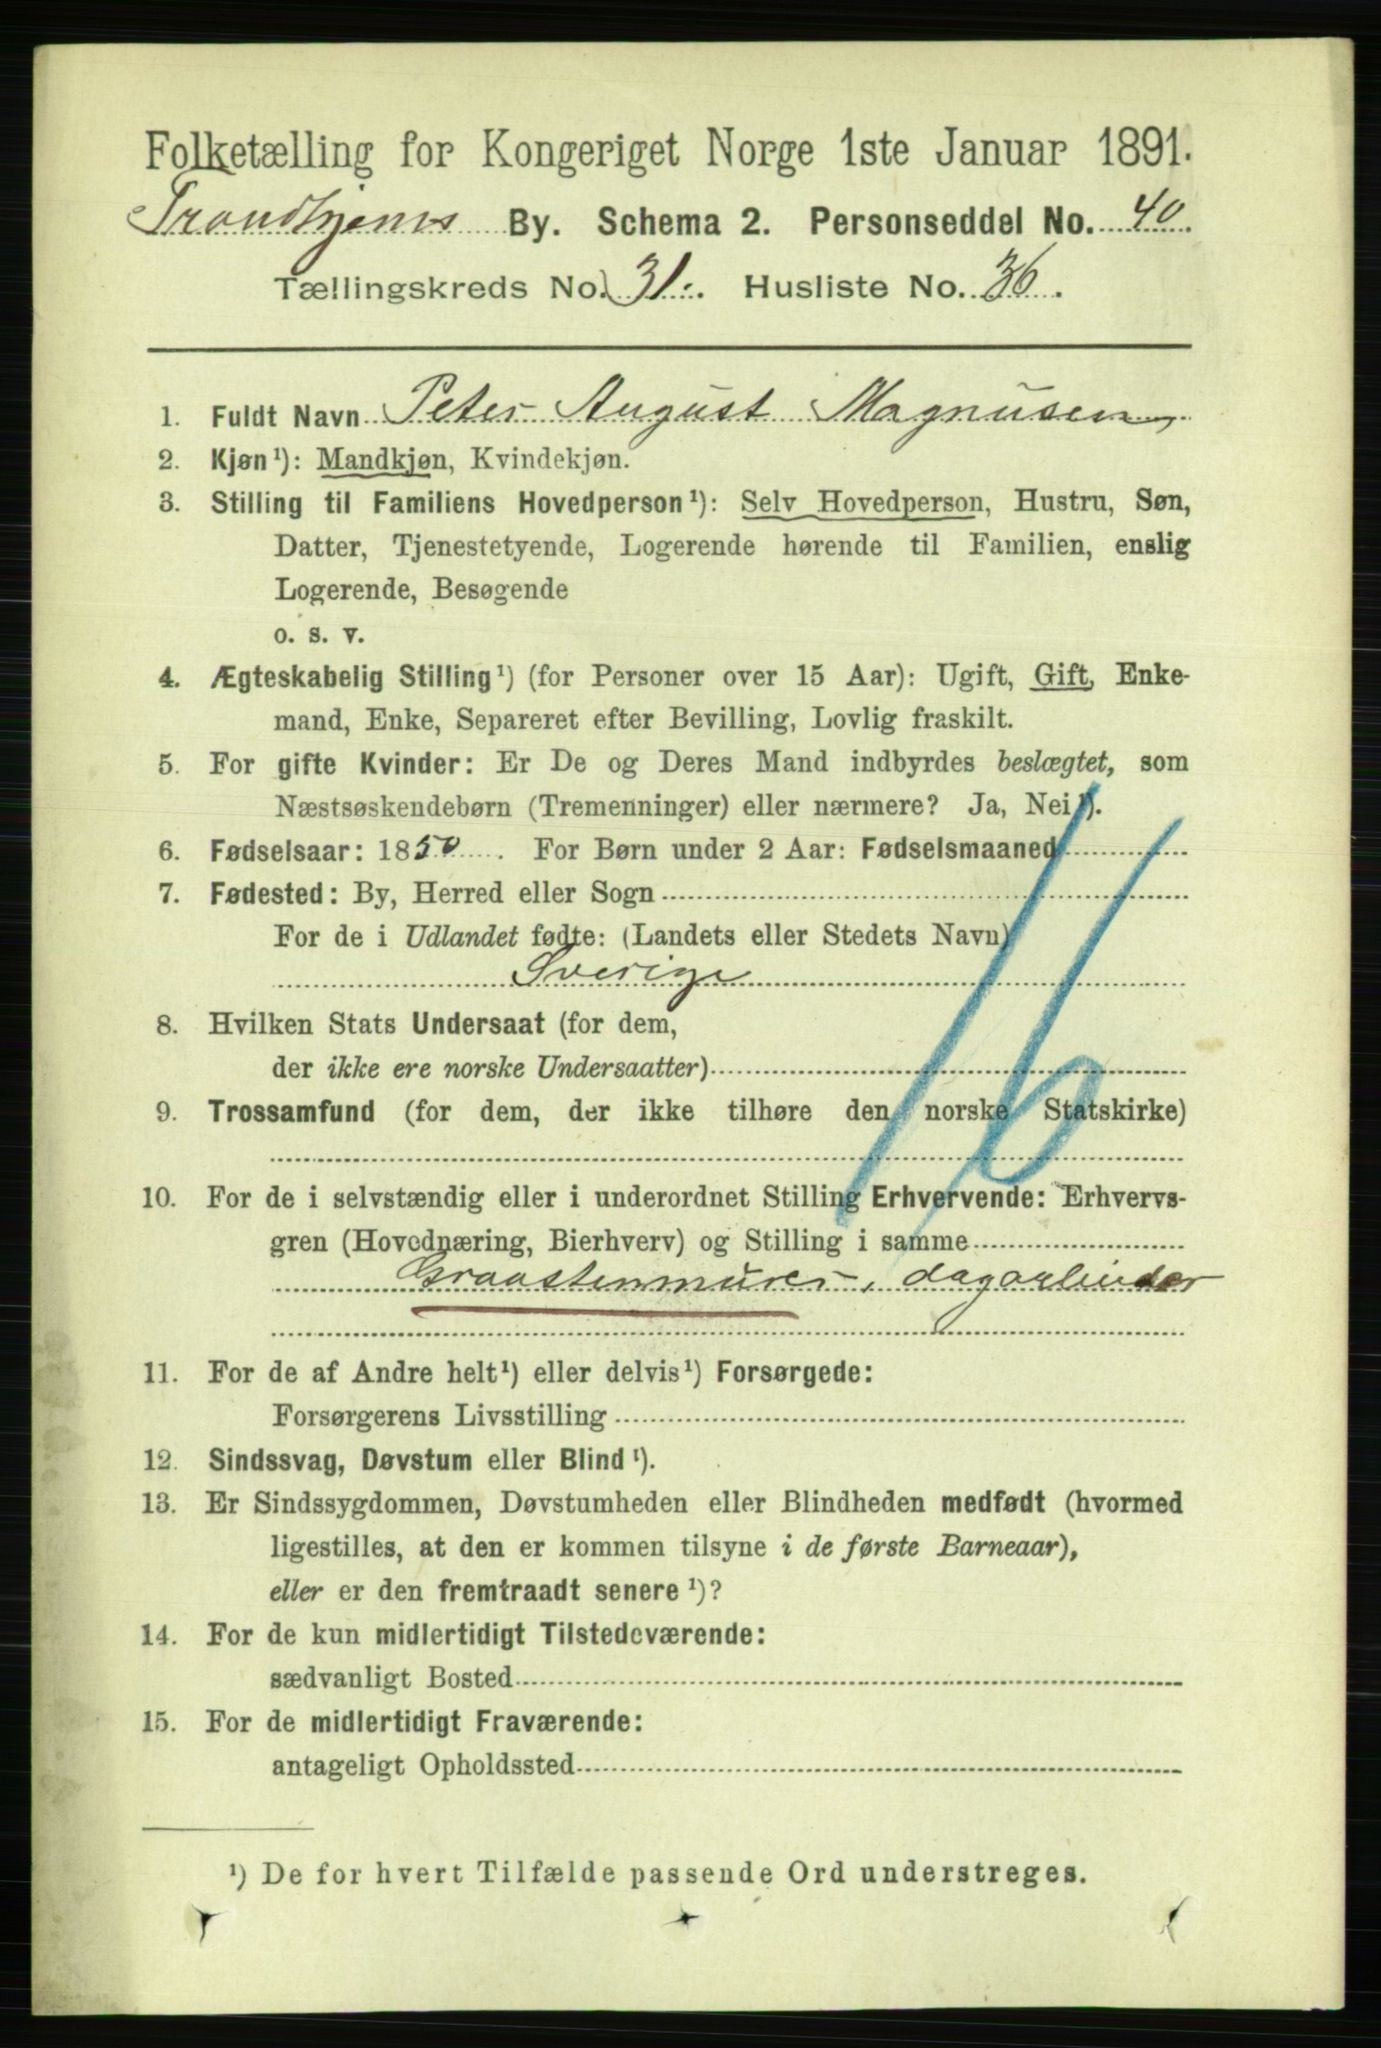 Folketælling for Kongeriget Norge 1ste Januar 1891.
Trondhjems By. Schema 2. Personseddel No. 40.
Tællingskreds No. 31. Husliste No. 36.
1. Fuldt Navn Peter August Magnusen,
2. Kjøn¹): Mandkjøn, Kvindekjøn.
3. Stilling til Familiens Hovedperson¹): Selv Hovedperson, Hustru, Søn,
Datter, Tjenestetyende, Logerende hørende til Familien, enslig
Logerende, Besøgende
o. s. v.
4. Ægteskabelig Stilling¹) (for Personer over 15 Aar): Ugift, Gift, Enke-
mand, Enke, Separeret efter Bevilling, Lovlig fraskilt.
5. For gifte Kvinder: Er De og Deres Mand indbyrdes beslægtet, som
Næstsøskendebørn (Tremenninger) eller nærmere? Ja, Nei¹).
6. Fødselsaar: 1850. For Børn under 2 Aar: Fødselsmaaned
7. Fødested: By, Herred eller Sogn
For de i Udlandet fødte: (Landets eller Stedets Navn)
Sverige
8. Hvilken Stats Undersaat (for dem,
der ikke ere norske Undersaatter)
9. Trossamfund (for dem, der ikke tilhøre den norske Statskirke)
16
10. For de i selvstændig eller i underordnet Stilling Erhvervende: Erhvervs-
gren (Hovednæring, Bierhverv) og Stilling i samme
Graastenmurer, dagarbeider
11. For de af Andre helt¹) eller delvis¹) Forsørgede:
Forsørgerens Livsstilling
12. Sindssvag, Døvstum eller Blind¹).
13. Er Sindssygdommen, Døvstumheden eller Blindheden medfødt (hvormed
ligestilles, at den er kommen tilsyne i de første Barneaar),
eller er den fremtraadt senere¹)?
14. For de kun midlertidigt Tilstedeværende:
sædvanligt Bosted
15. For de midlertidigt Fraværende:
antageligt Opholdssted
¹) De for hvert Tilfælde passende Ord understreges.